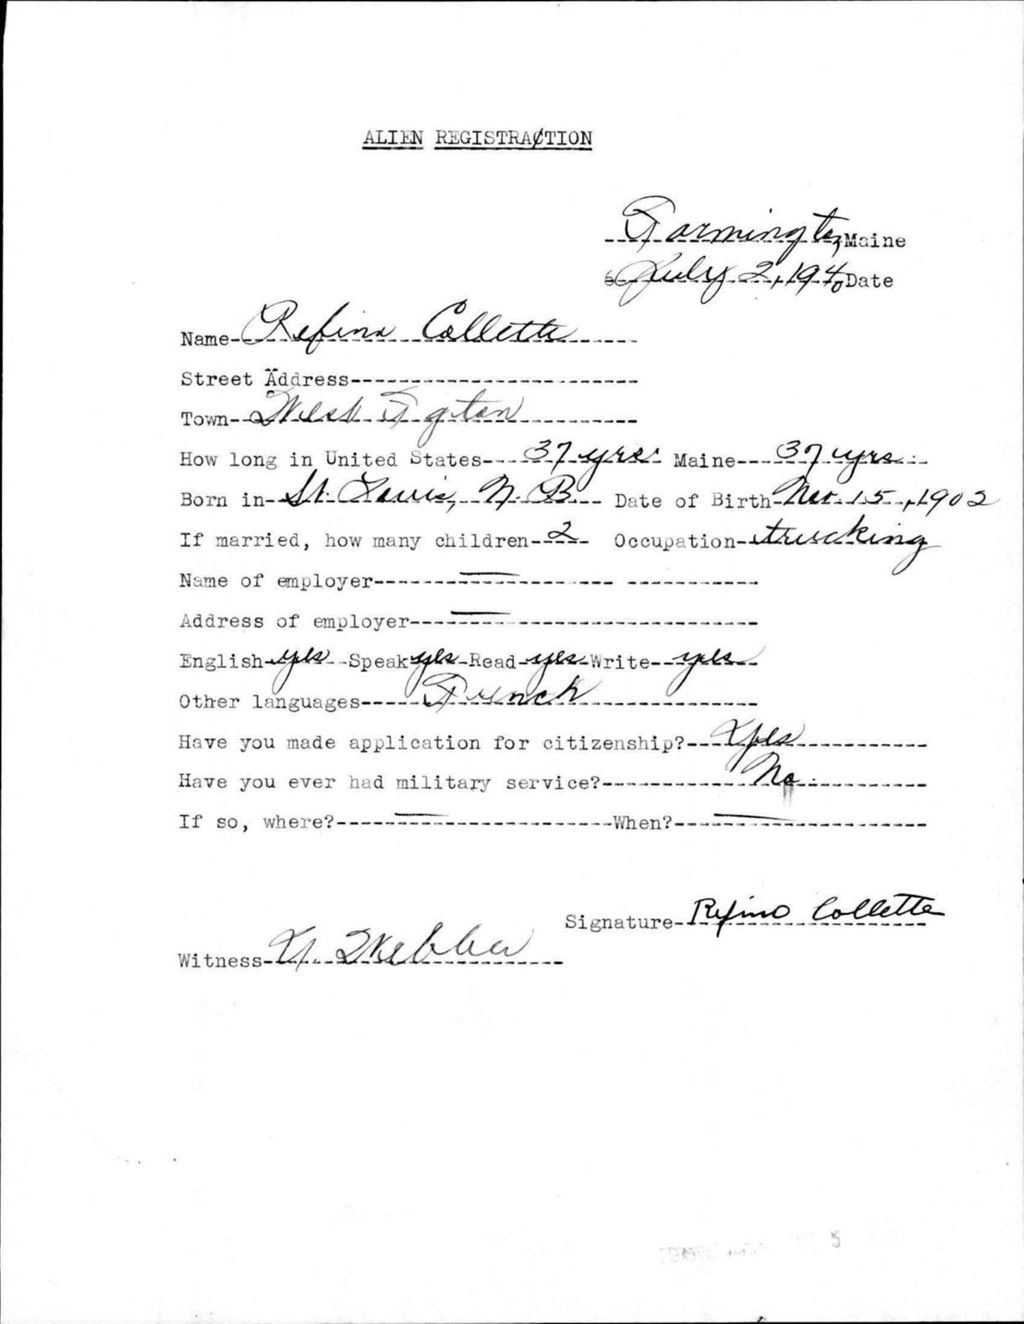 ALIEN REGISTRACTION
Farmington Maine
July 2, 1940 Date
Name Refino Collette
Street Address
Town West Fgton
How long in United States 37 yrs. Maine 37 yrs.
Born in St. Louis, N. B. Date of Birth 15, 1902
If married, how many children 2 Occupation trucking
Name of employer —
Address of employer —
English yes Speak yes Read yes Write yes
Other languages French
Have you made application for citizenship? Yes
Have you ever had military service? No.
If so, where? — When? —
Signature Refino Collette
Witness